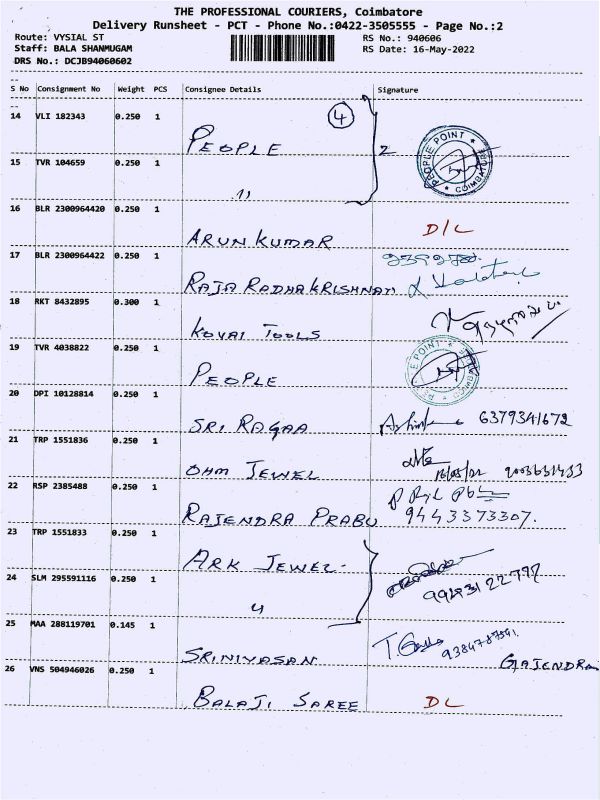 THE PROFESSIONAL COURIERS, Coimbatore
Delivery Runsheet - PCT - Phone No.:0422-3505555 - Page No.:2
Route: VYSIAL ST
RS No.: 940606
Staff: BALA SHANMUGAM
RS Date: 16-May-2022
DRS No.: DCJB94060602
S No Consignment No Weight PCS Consignee Details Signature
14 VLI 182343 0.250 1 PEOPLE 4
15 TVR 104659 0.250 1 " 2 PEOPLE POINT COIMBATORE
16 BLR 2300964420 0.250 1 ARUN KUMAR D/L
17 BLR 2300964422 0.250 1 RAJA RADHAKRISHNAN
18 RKT 8432895 0.300 1 KOVAI TOOLS
19 TVR 4038822 0.250 1 PEOPLE
20 DPI 10128814 0.250 1 SRI RAGAA 6379341672
21 TRP 1551836 0.250 1 OHM JEWEL
22 RSP 2385488 0.250 1 RAJENDRA PRABU 9443373307.
23 TRP 1551833 0.250 1 ARK JEWEL
24 SLM 295591116 0.250 1 "
25 MAA 288119701 0.145 1 SRINIVASAN GAJENDRAN
26 VNS 504946026 0.250 1 BALAJI SAREE DL